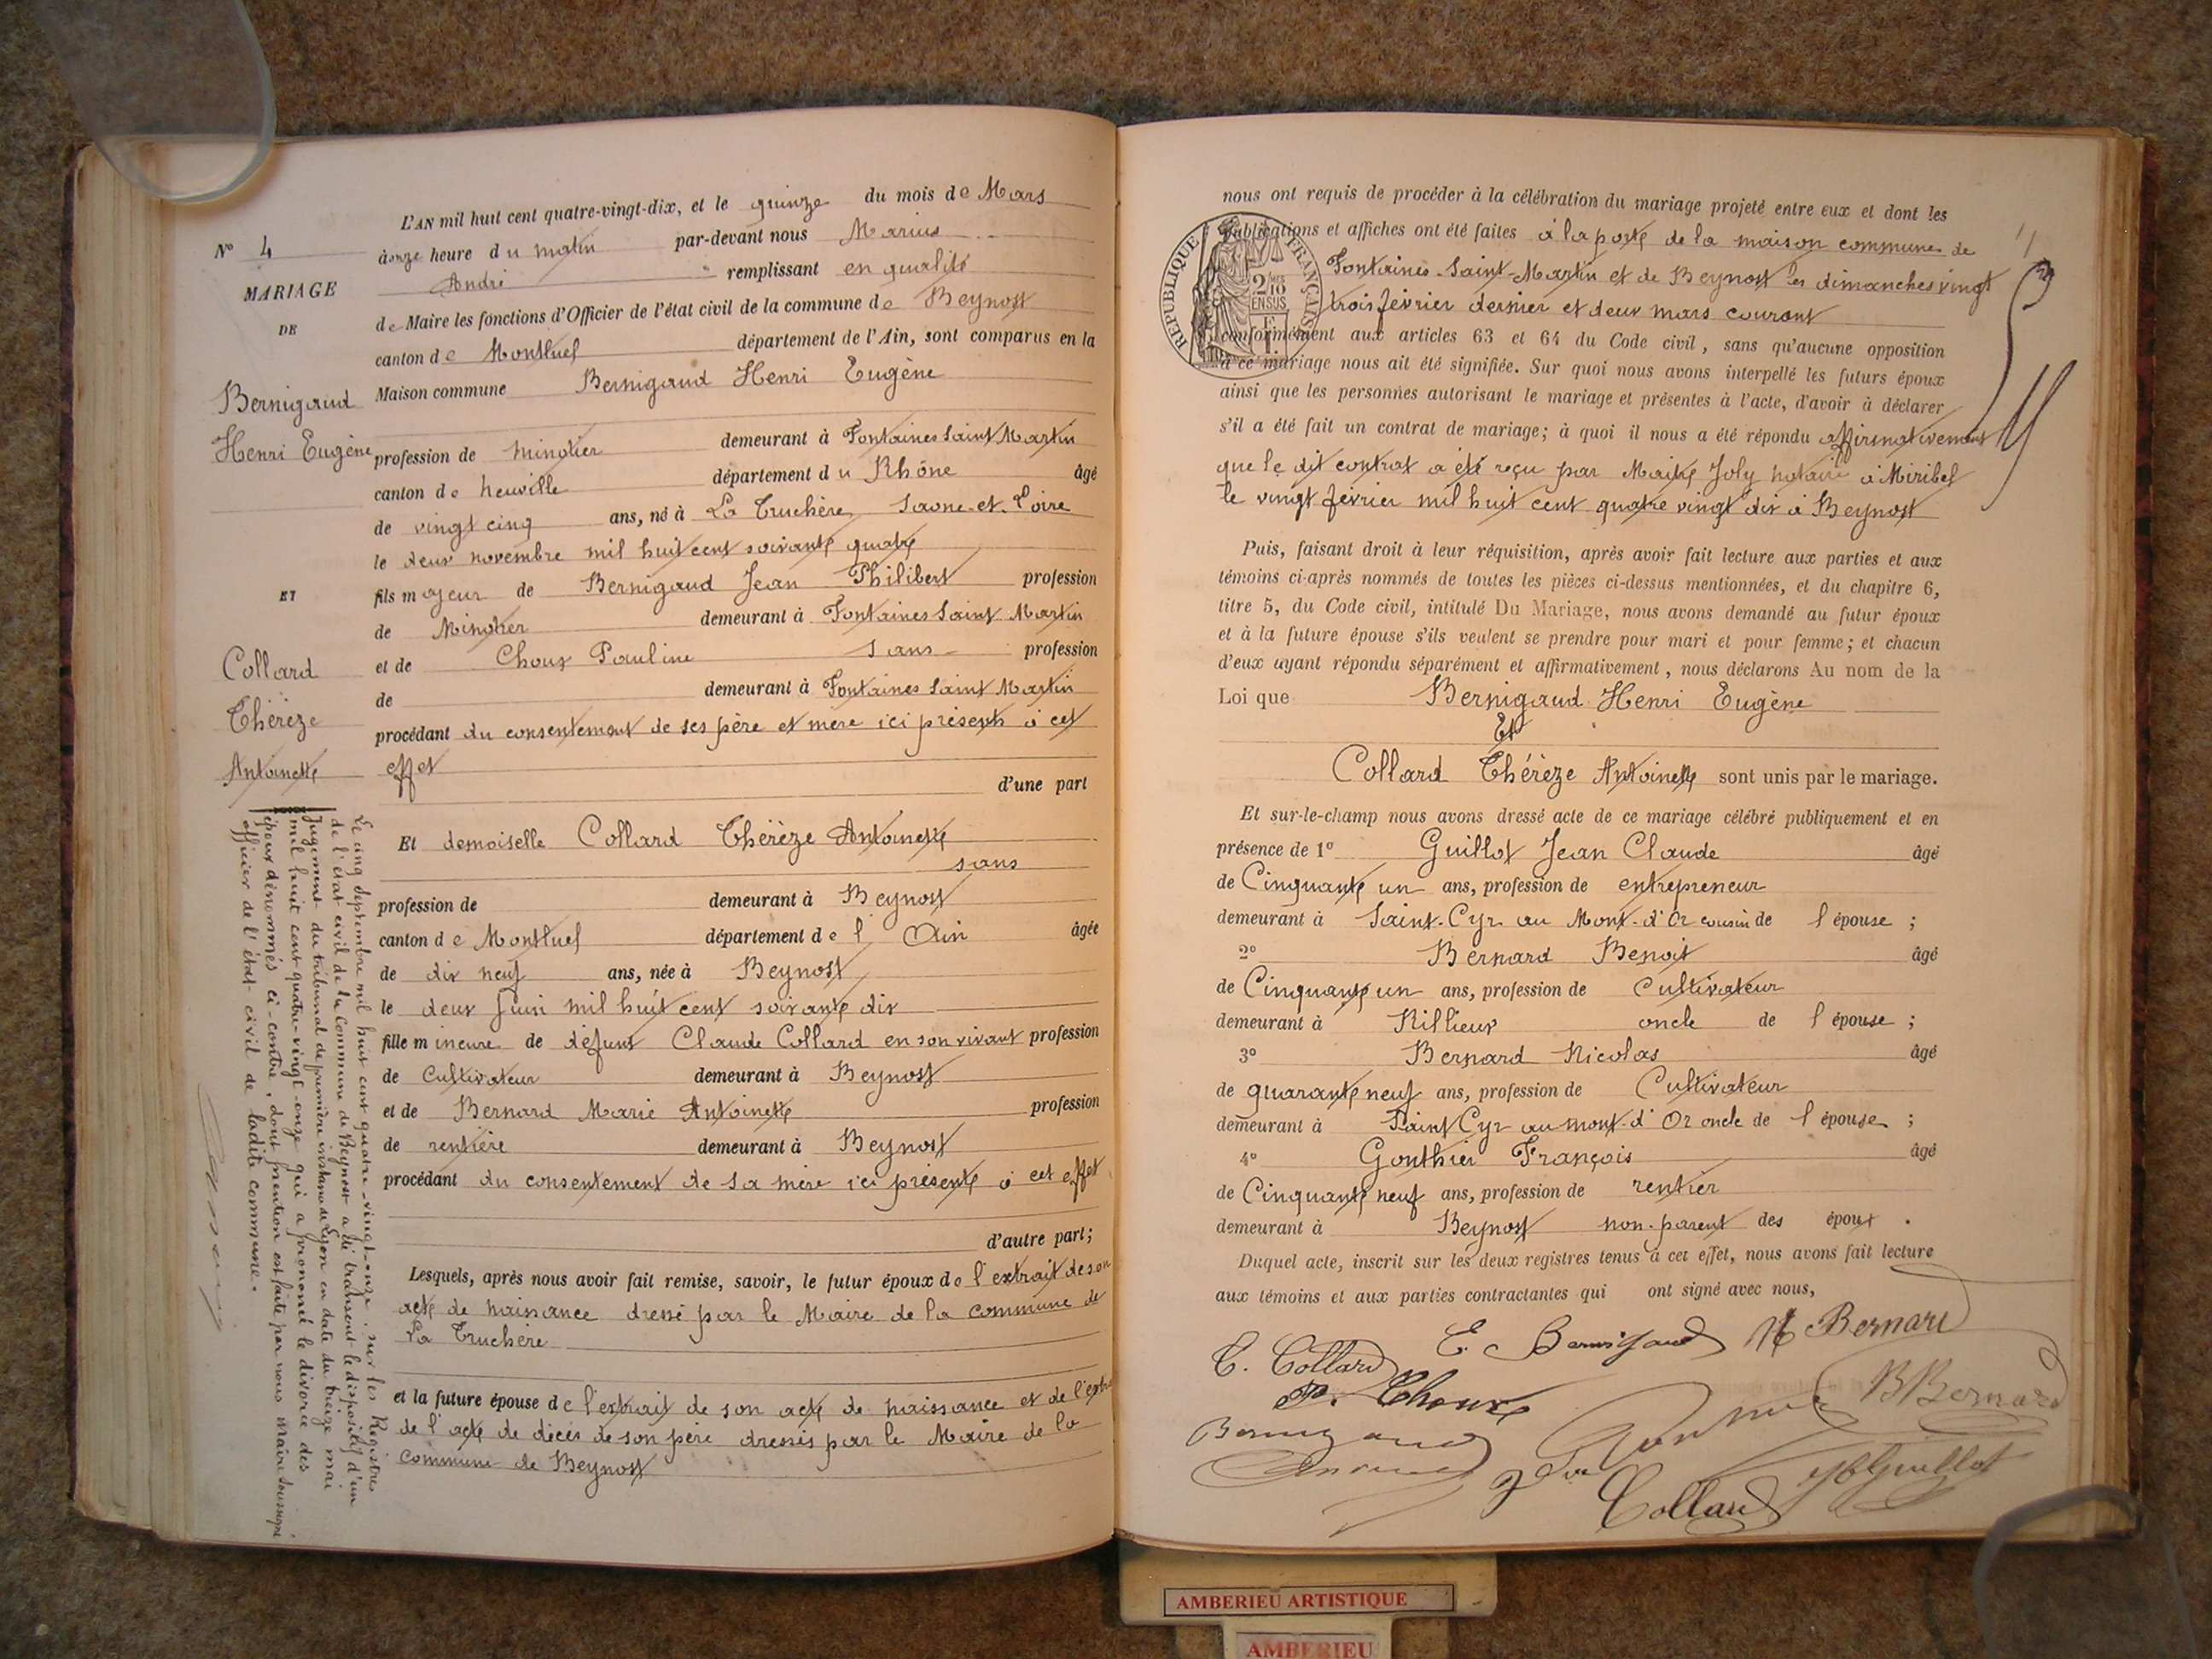 N° 4
MARIAGE
DE
Bernigaud
Henri Eugène
ET
Collard
Thérèze
Antoinette
Le cinq Septembre mil huit cent quatre-vingt-onze, sur les Registres
de l'état civil de la Commune de Beynost a été transcrit le dispositif d'un
Jugement du tribunal de première instance de Lyon en date du treize mai
mil huit cent quatre-vingt-onze qui a prononcé le divorce des
époux dénommés ci-contre, dont mention est faite par nous maire soussigné
officier de l'état-civil de ladite commune.
L'AN mil huit cent quatre-vingt-dix, et le quinze du mois de Mars
à onze heure du matin par-devant nous Marius
André remplissant en qualité
de Maire les fonctions d'Officier de l'état civil de la commune de Beynost
canton de Montluel département de l'Ain, sont comparus en la
Maison commune Bernigaud Henri Eugène
profession de minotier demeurant à Fontaines Saint Martin
canton de Neuville département du Rhône âgé
de vingt cinq ans, né à La Truchère Saone-et-Loire
le deux novembre mil huit cent soixante quatre
fils majeur de Bernigaud Jean Philibert profession
de Minotier demeurant à Fontaines Saint Martin
et de Choux Pauline sans profession
de demeurant à Fontaines Saint Martin
procédant du consentement de ses père et mère ici présents à cet
effet
d'une part
Et demoiselle Collard Thérèze Antoinette
sans
profession de demeurant à Beynost
canton de Montluel département de l'Ain âgée
de dix neuf ans, née à Beynost
le deux Juin mil huit cent soixante dix
fille mineure de défunt Claude Collard en son vivant profession
de Cultivateur demeurant à Beynost
et de Bernard Marie Antoinette profession
de rentière demeurant à Beynost
procédant du consentement de sa mère ici présente à cet effet
d'autre part;
Lesquels, après nous avoir fait remise, savoir, le futur époux de l'extrait de son
acte de naissance dressé par le Maire de la commune de
La Truchère
et la future épouse de l'extrait de son acte de naissance et de l'extra
de l'acte de décès de son père dressés par le Maire de la
commune de Beynost
nous ont requis de procéder à la célébration du mariage projeté entre eux et dont les
publications et affiches ont été faites à la porte de la maison commune de
Fontaines-Saint-Martin et de Beynost les dimanches vingt
trois février dernier et deux mars courant
conformément aux articles 63 et 64 du Code civil, sans qu'aucune opposition
à ce mariage nous ait été signifiée. Sur quoi nous avons interpellé les futurs époux
ainsi que les personnes autorisant le mariage et présentes à l'acte, d'avoir à déclarer
s'il a été fait un contrat de mariage; à quoi il nous a été répondu affirmativement
que le dit contrat a été reçu par Maitre Joly notaire à Miribel
le vingt février mil huit cent quatre vingt dix à Beynost
RÉPUBLIQUE FRANÇAISE
2/10
EN SUS
Puis, faisant droit à leur réquisition, après avoir fait lecture aux parties et aux
témoins ci-après nommés de toutes les pièces ci-dessus mentionnées, et du chapitre 6,
titre 5, du Code civil, intitulé Du Mariage, nous avons demandé au futur époux
et à la future épouse s'ils veulent se prendre pour mari et pour femme; et chacun
d'eux ayant répondu séparément et affirmativement, nous déclarons Au nom de la
Loi que Bernigaud Henri Eugène
Et
Collard Thérèze Antoinette sont unis par le mariage.
Et sur-le-champ nous avons dressé acte de ce mariage célébré publiquement et en
présence de 1° Guillot Jean Claude âgé
de Cinquante un ans, profession de entrepreneur
demeurant à Saint-Cyr au Mont-d'Or cousin de l'épouse ;
2° Bernard Benoit âgé
de Cinquante un ans, profession de Cultivateur
demeurant à Rillieux oncle de l'épouse ;
3° Bernard Nicolas âgé
de quarante neuf ans, profession de Cultivateur
demeurant à Saint Cyr au mont-d'Or oncle de l'épouse ;
4° Gonthier François âgé
de Cinquante neuf ans, profession de rentier
demeurant à Beynost non-parent des époux .
Duquel acte, inscrit sur les deux registres tenus à cet effet, nous avons fait lecture
aux témoins et aux parties contractantes qui ont signé avec nous,
T. Collard E. Bernigaud N Bernard
P. Choux B Bernard
Bernigaud
Collard JC Guillot
AMBERIEU ARTISTIQUE
AMBERIEU